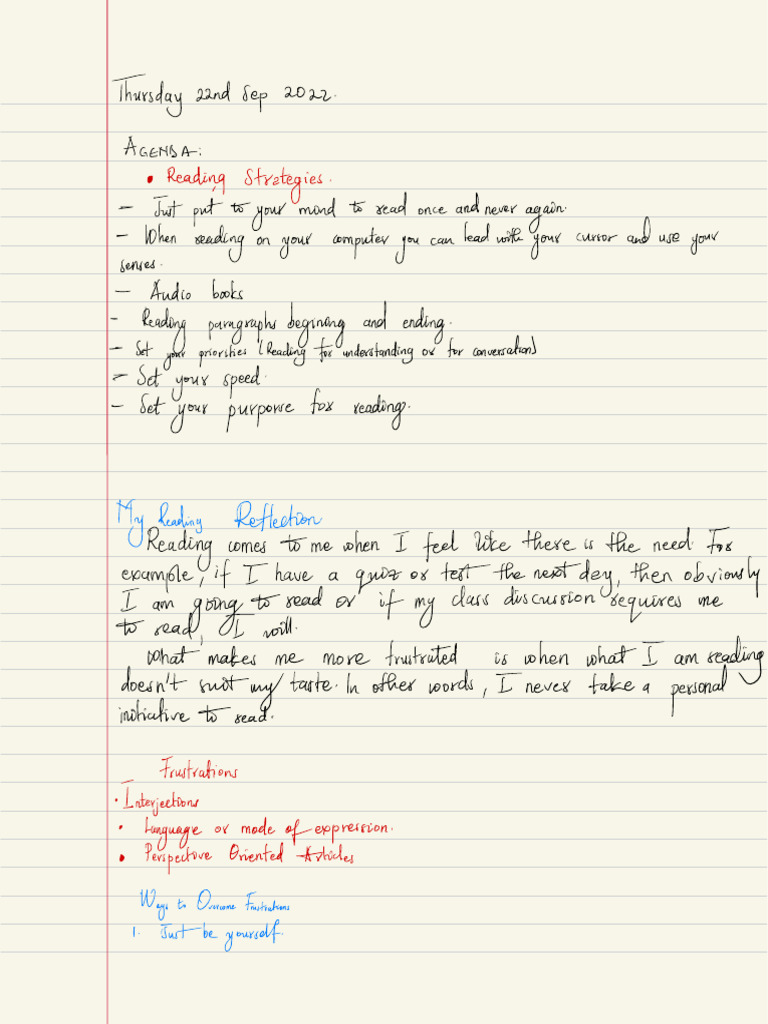 Thursday 22nd Sep 2022.
AGENDA:
• Reading Strategies.
- Just put to your mind to read once and never again.
- When reading on your computer you can lead with your cursor and use your
senses.
- Audio books
- Reading paragraphs begining and ending.
- Set your priorities (Reading for understanding or for conversation)
- Set your speed.
- Set your purporse for reading.
My Reading Reflection
Reading comes to me when I feel like there is the need. For
example, if I have a quiz or test the next day, then obviously
I am going to read or if my class discussion requires me
to read, I will.
What makes me more frustrated is when what I am reading
doesn't suit my taste. In other words, I never take a personal
initiative to read.
Frustrations
• Interjections
• Language or mode of expression.
• Perspective Oriented Articles
Ways to Overcome Frustrations
1. Just be yourself.